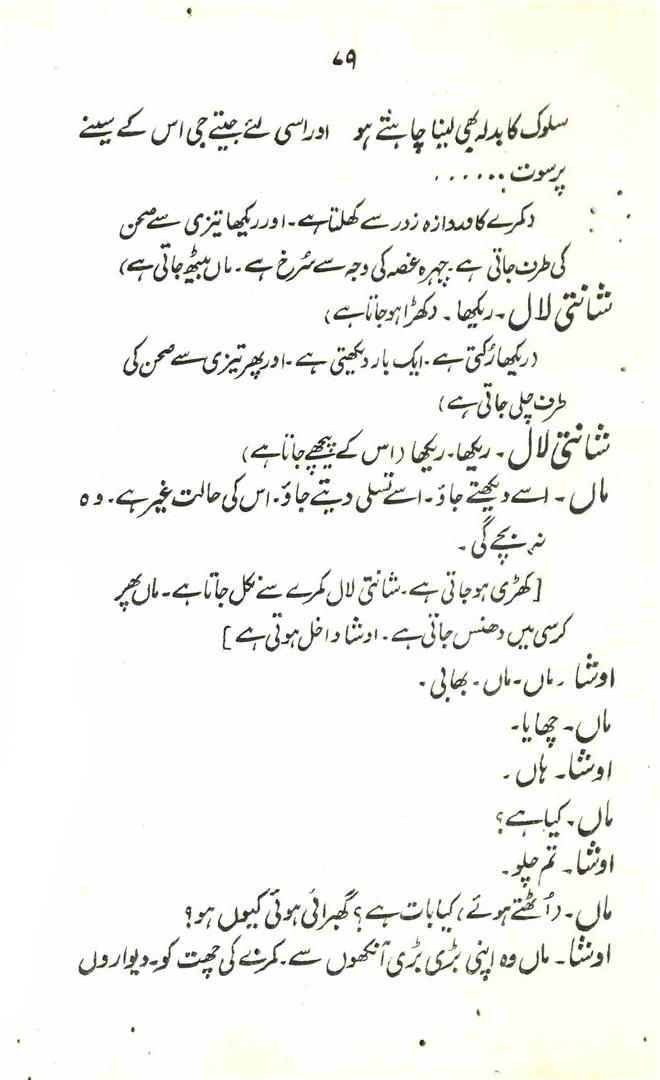 ۷۹
سلوک کا بدلہ بھی لینا چاہتے ہو اور اسی لئے جیتے جی اس کے سینے
پر سوت ......
(کمرے کا دروازہ زور سے کھلتا ہے۔ اور ریکھا تیزی سے صحن
کی طرف جاتی ہے۔ چہرہ غصہ کی وجہ سے سُرخ ہے۔ ماں بیٹھ جاتی ہے)
شانتی لال۔ ریکھا۔ (کھڑا ہو جاتا ہے)
(ریکھا رُکتی ہے۔ ایک بار دیکھتی ہے۔ اور پھر تیزی سے صحن کی
طرف چلی جاتی ہے)
شانتی لال۔ ریکھا۔ ریکھا (اس کے پیچھے جاتا ہے)
ماں۔ اسے دیکھتے جاؤ۔ اسے تسلی دیتے جاؤ۔ اس کی حالت غیر ہے۔ وہ
نہ بچے گی۔
[کھڑی ہو جاتی ہے۔ شانتی لال کمرے سے نکل جاتا ہے۔ ماں پھر
کرسی میں دھنس جاتی ہے۔ اوشا داخل ہوتی ہے]
اوشا۔ ماں۔ ماں۔ بھابی۔
ماں۔ چھایا۔
اوشا۔ ہاں۔
ماں۔ کیا ہے؟
اوشا۔ تم چلو۔
ماں۔ (اُٹھتے ہوئے) کیا بات ہے؟ گھبرائی ہوئی کیوں ہو؟
اوشا۔ ماں وہ اپنی بڑی بڑی آنکھوں سے۔ کمرے کی چھت کو۔ دیواروں